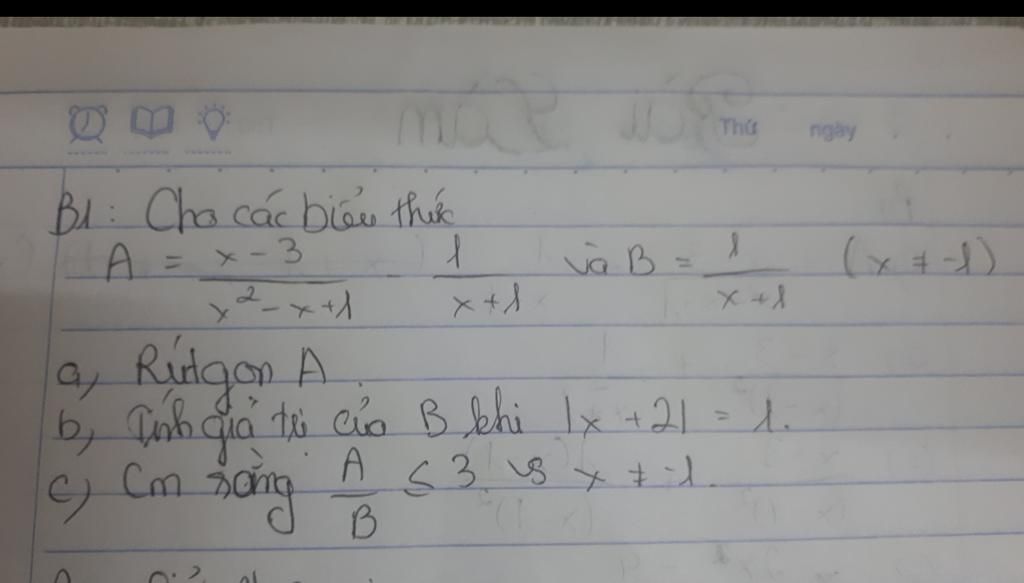 Thứ ngày
B1: Cho các biểu thức
A = \frac{x-3}{x^2-x+1} - \frac{1}{x+1} và B = \frac{1}{x+1} (x ≠ -1)
a, Rút gọn A.
b, Tính giá trị của B khi |x+2| = 1.
c, Cm rằng \frac{A}{B} ≤ 3 vs x ≠ -1.